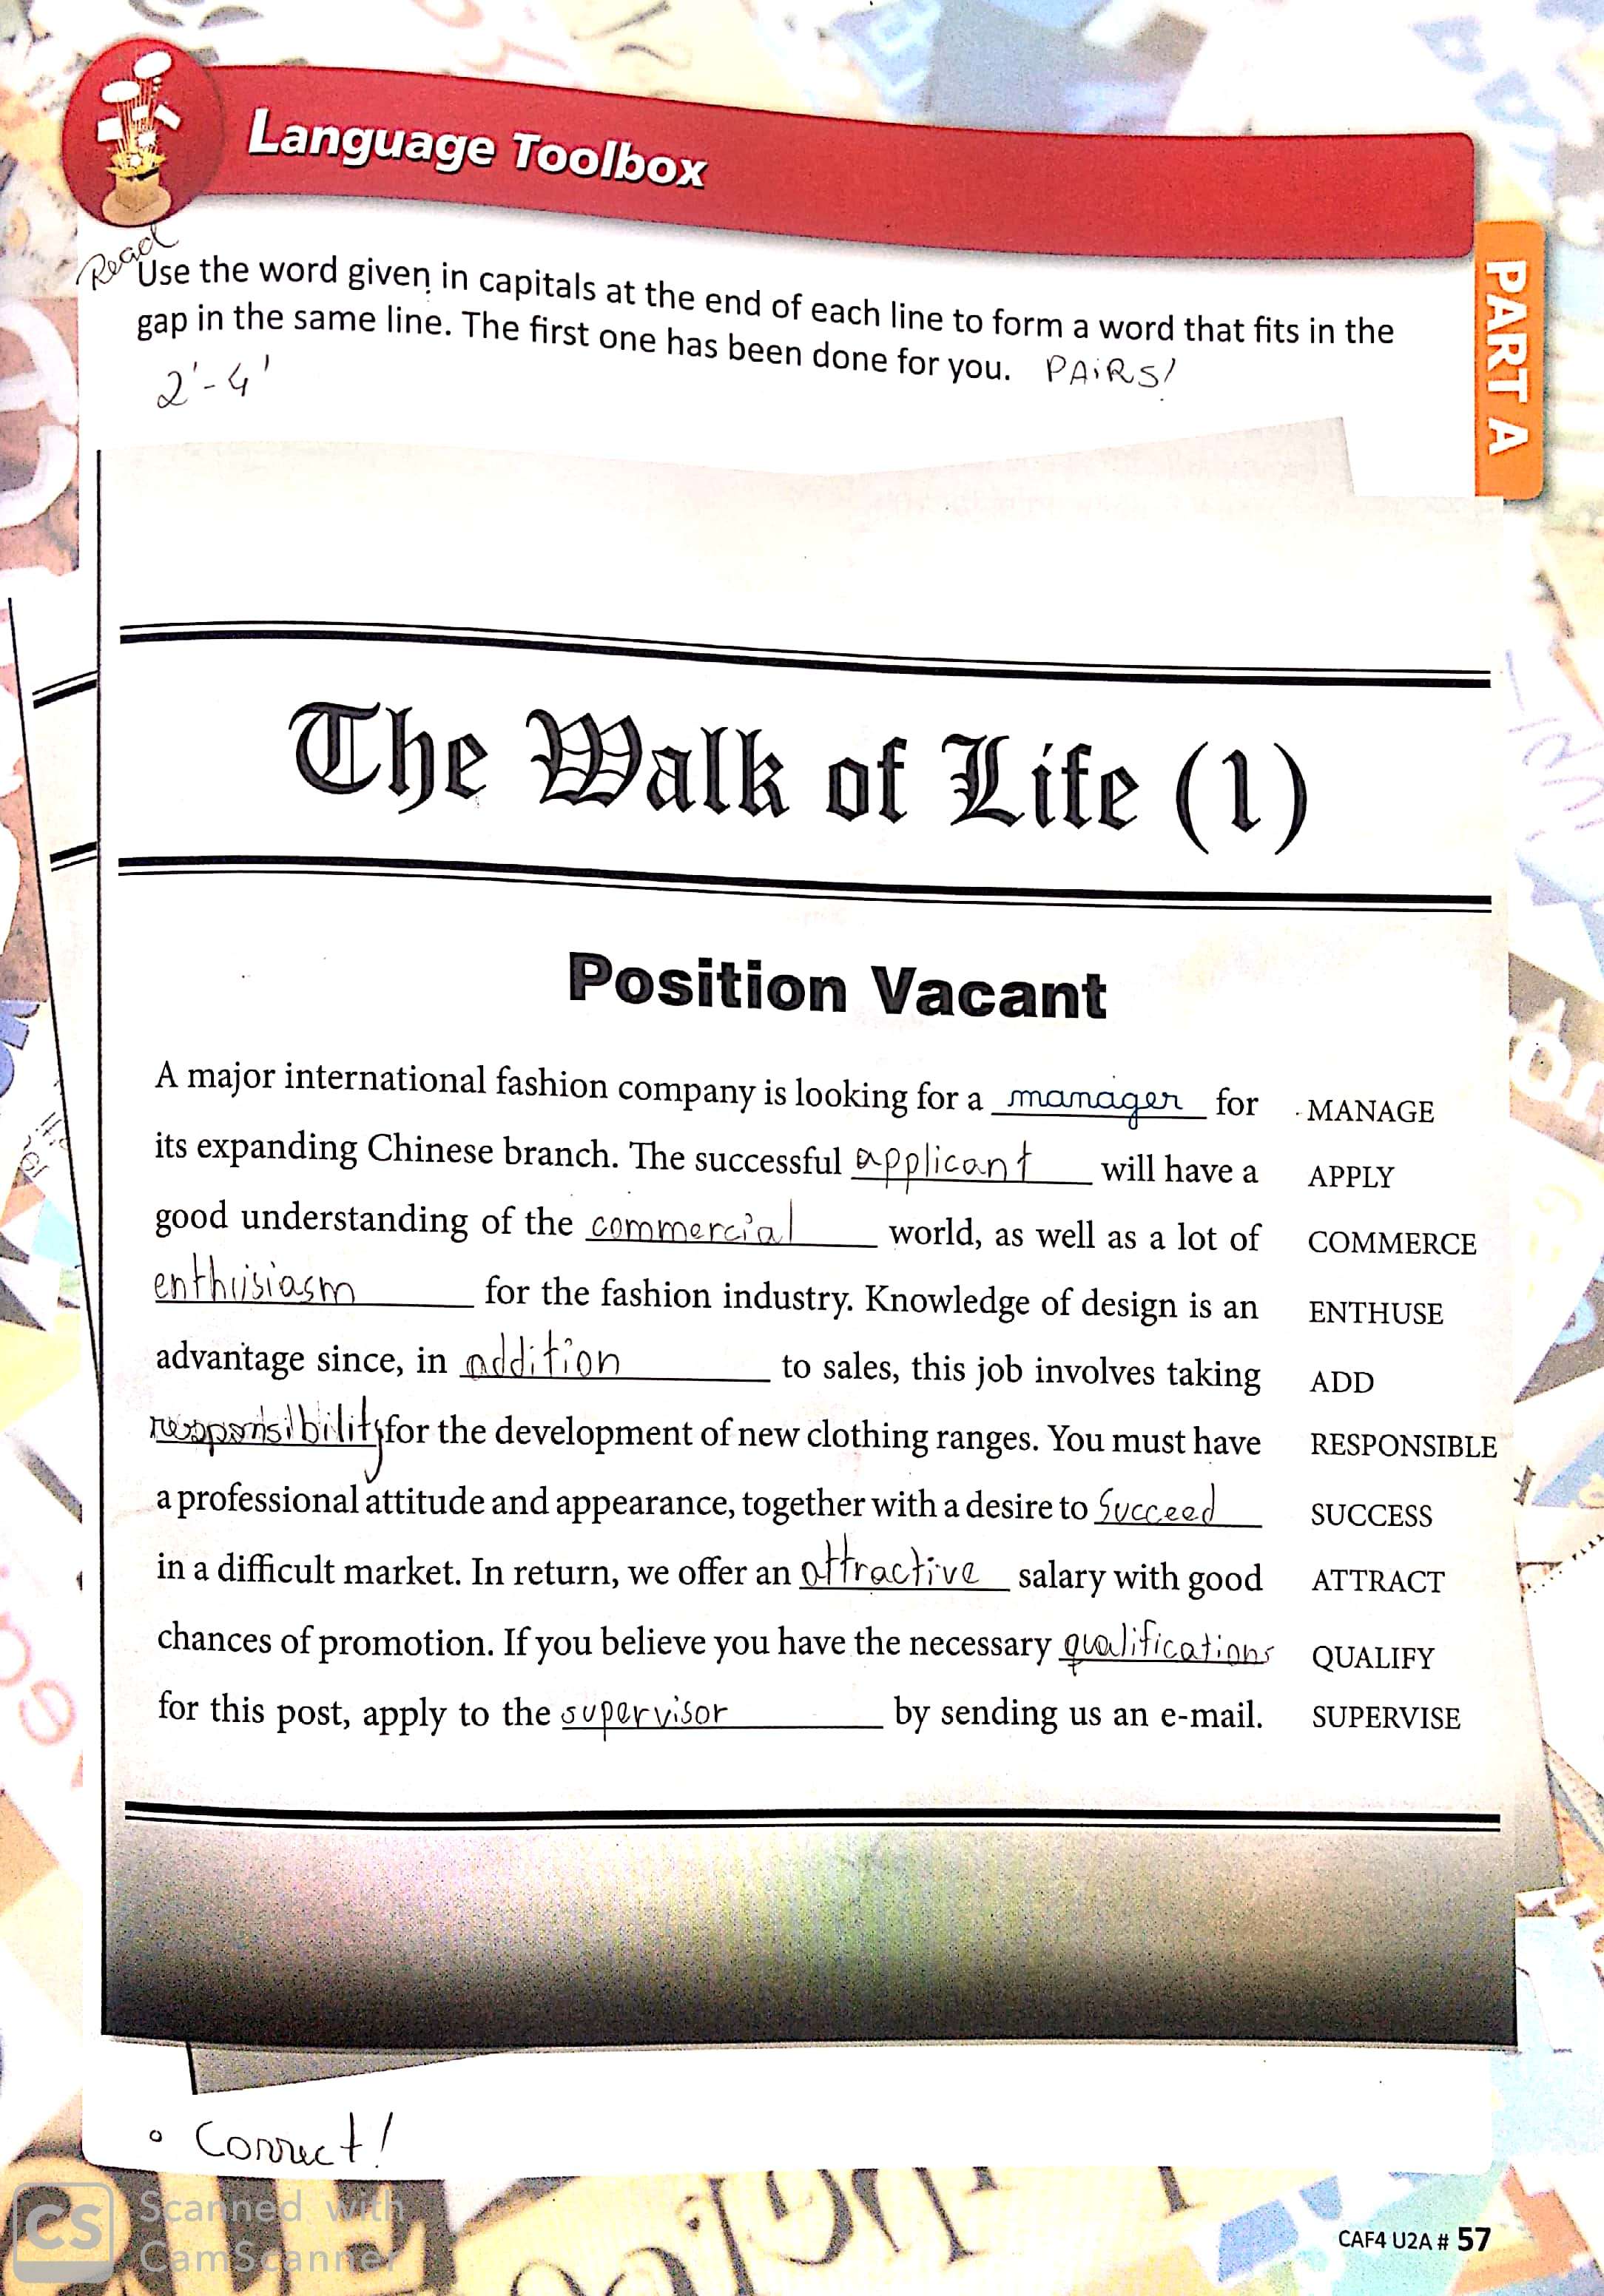 Language Toolbox
PART A
Read
Use the word given in capitals at the end of each line to form a word that fits in the
gap in the same line. The first one has been done for you. PAiRS!
2'-4'
The Walk of Life (1)
Position Vacant
A major international fashion company is looking for a manager for MANAGE
its expanding Chinese branch. The successful applicant will have a APPLY
good understanding of the commercial world, as well as a lot of COMMERCE
enthusiasm for the fashion industry. Knowledge of design is an ENTHUSE
advantage since, in addition to sales, this job involves taking ADD
responsibility for the development of new clothing ranges. You must have RESPONSIBLE
a professional attitude and appearance, together with a desire to Succeed SUCCESS
in a difficult market. In return, we offer an attractive salary with good ATTRACT
chances of promotion. If you believe you have the necessary qualifications QUALIFY
for this post, apply to the supervisor by sending us an e-mail. SUPERVISE
Correct!
CS Scanned with
CamScanner
CAF4 U2A # 57